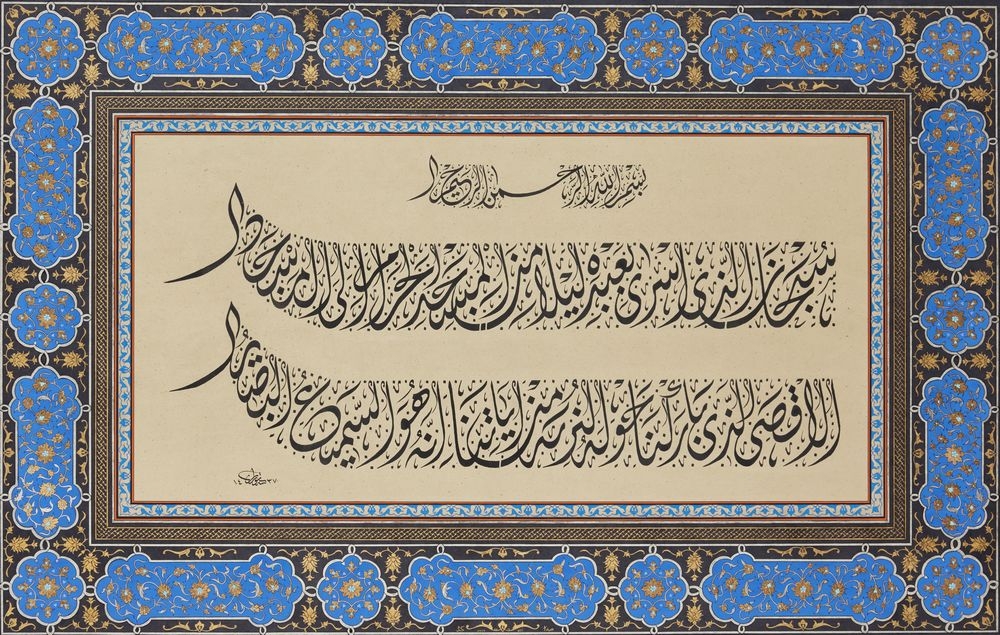 بسم الله الرحمن الرحيم
سبحان الذى اسرى بعبده ليلا من المسجد الحرام الى المسجد
الاقصى الذى باركنا حوله لنريه من اياتنا انه هو السميع البصير
١٤٣٧